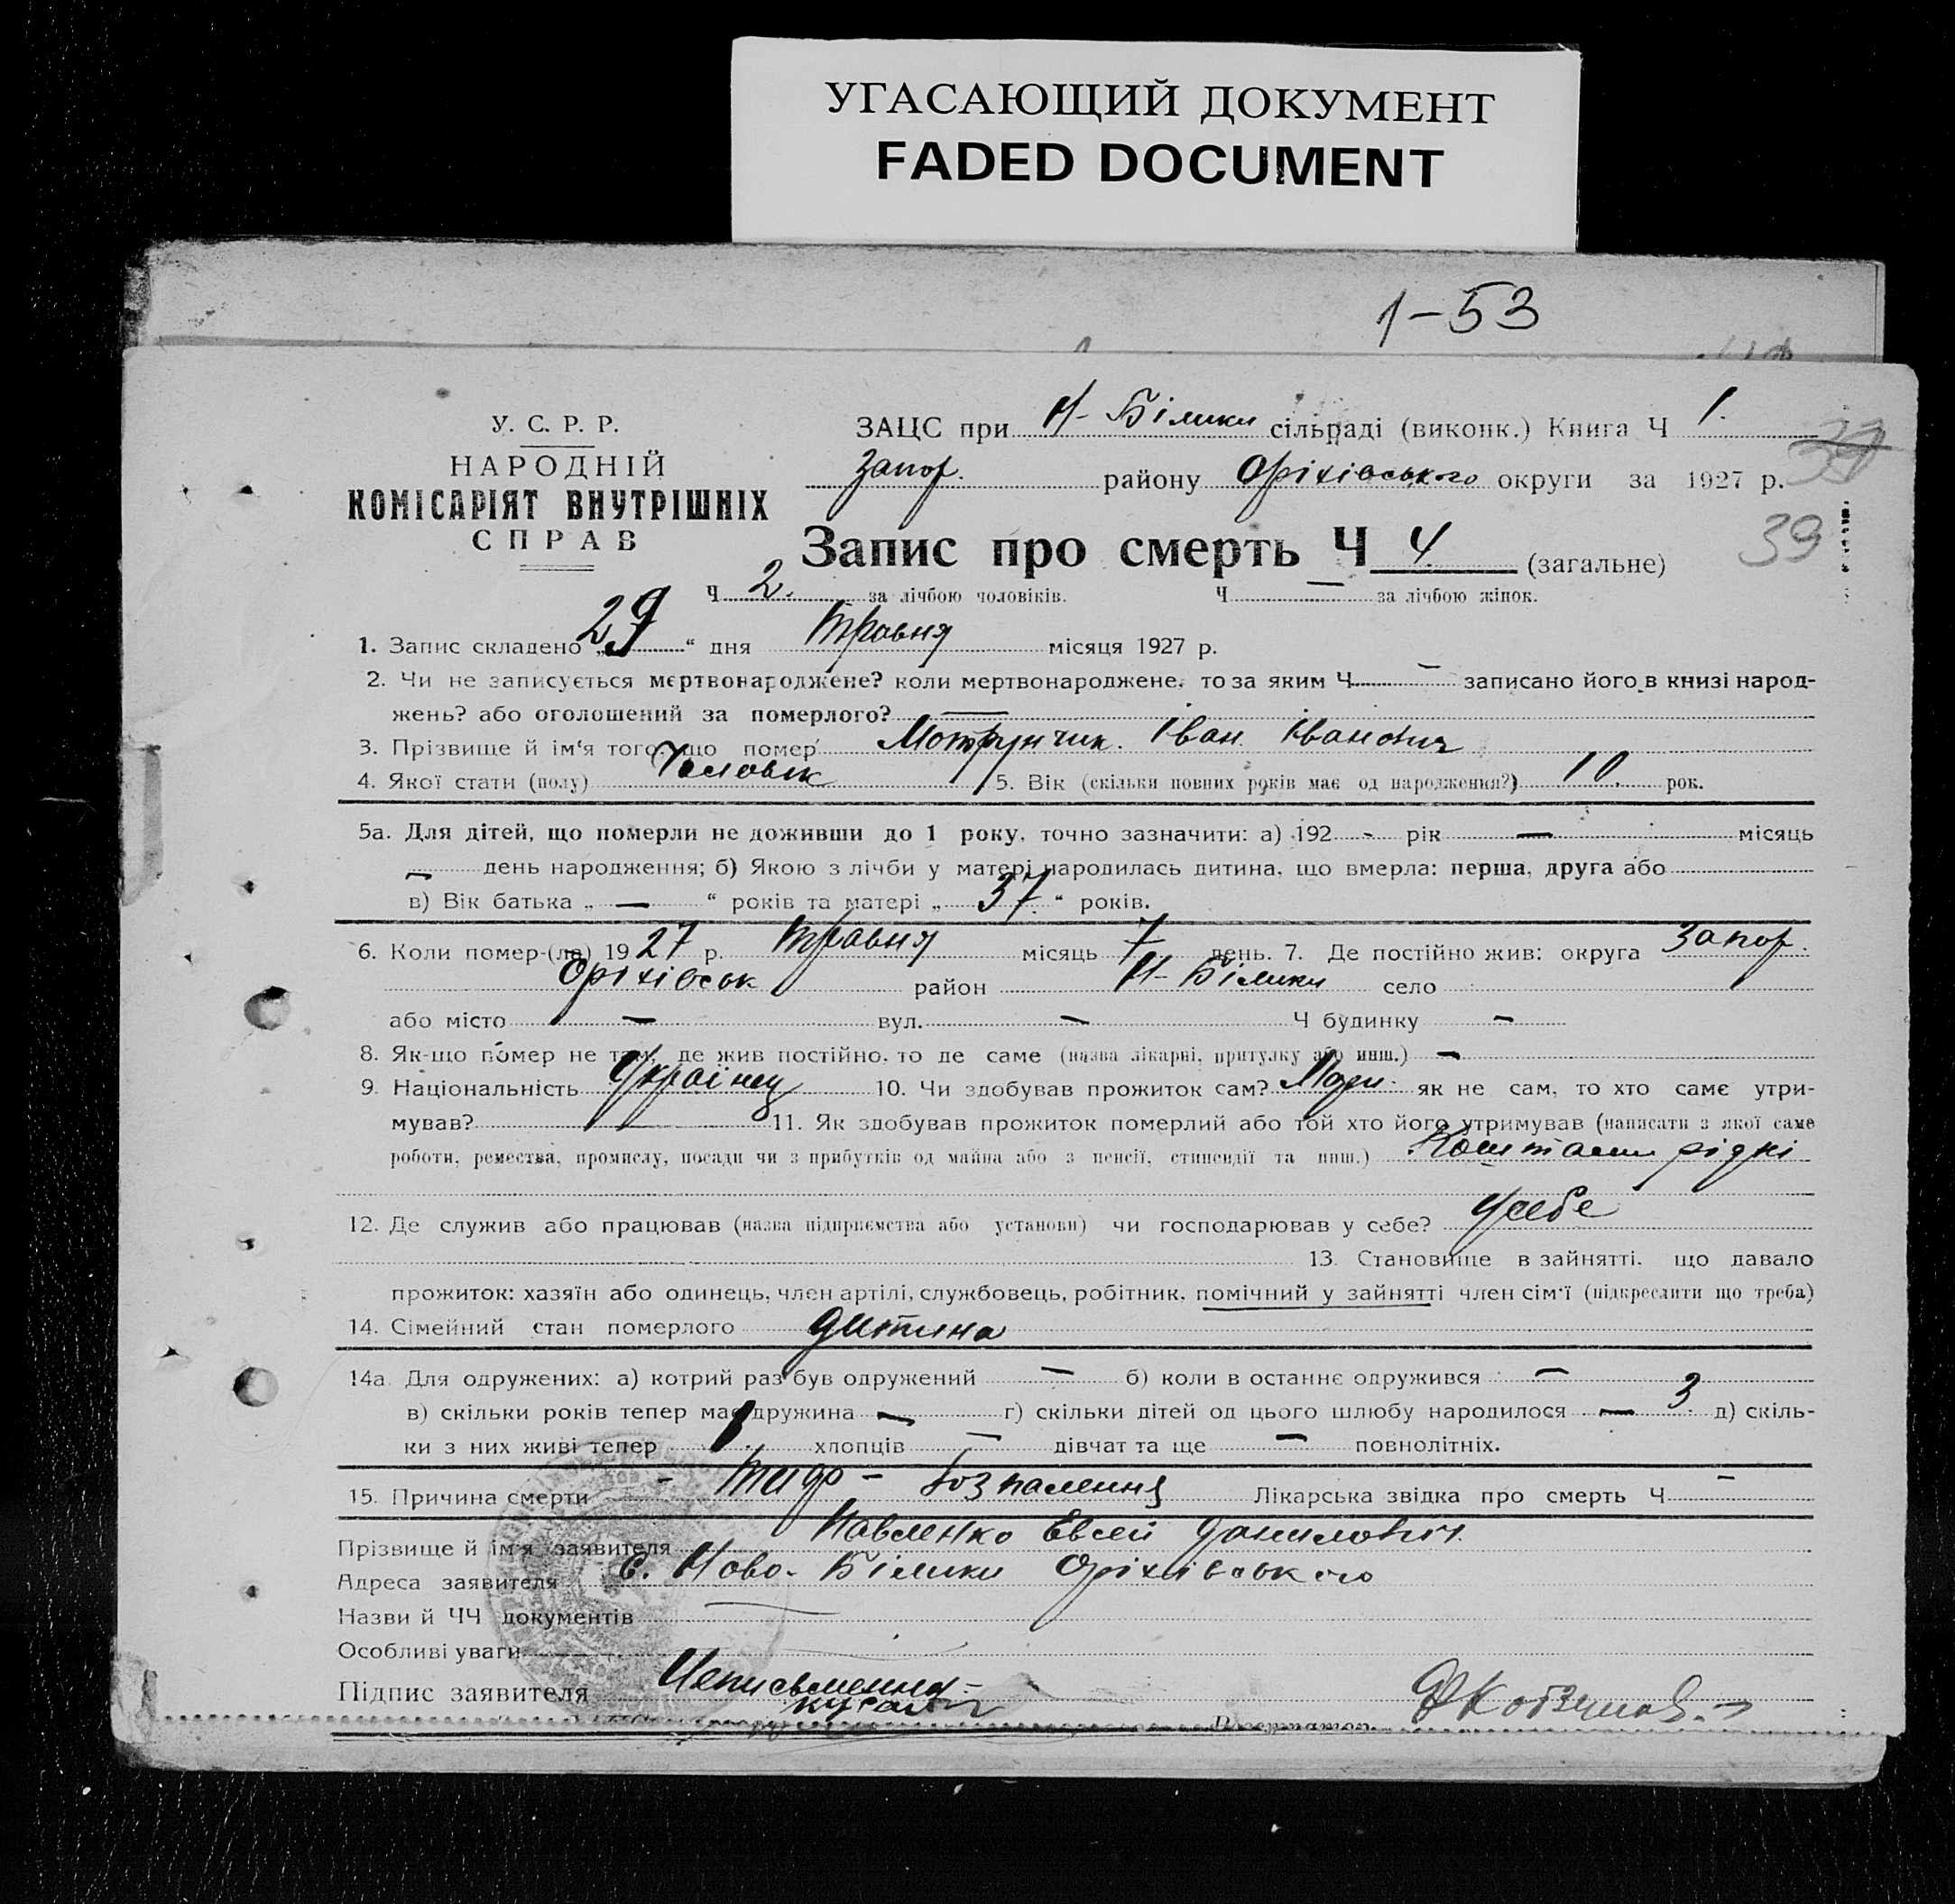 УГАСАЮЩИЙ ДОКУМЕНТ
FADED DOCUMENT
1-53
У. С. Р. Р.
НАРОДНІЙ
КОМІСАРІЯТ ВНУТРІШНІХ
СПРАВ
ЗАЦС при Н-Білики сільраді (виконк.) Книга Ч 1.
Запор. району Оріхівського округи за 1927 р.
39
Запис про смерть Ч 4 (загальне)
Ч 2. за лічбою чоловіків. Ч — за лічбою жінок.
1. Запис складено „29“ дня Травня місяця 1927 р.
2. Чи не записується мертвонароджене? коли мертвонароджене, то за яким Ч — записано його в книзі народ-
жень? або оголошений за померлого? —
3. Прізвище й ім'я того, що помер Мотрунчик. Іван Іванович
4. Якої стати (полу) Чоловік 5. Вік (скільки повних років має од народження?) 10. рок.
5а. Для дітей, що померли не доживши до 1 року, точно зазначити: а) 192 - рік — місяць
— день народження; б) Якою з лічби у матері народилась дитина, що вмерла: перша, друга або
в) Вік батька „ — “ років та матері „ 37. “ років.
6. Коли помер-(ла) 1927 р. Травня місяць 7 день. 7. Де постійно жив: округа Запор.
Оріхівськ район Н-Білики село
або місто — вул. — Ч будинку —
8. Як-що помер не там, де жив постійно, то де саме (назва лікарні, притулку або инш.) —
9. Національність Українец 10. Чи здобував прожиток сам? як не сам, то хто саме утри-
мував? — 11. Як здобував прожиток померлий або той хто його утримував (написати з якої саме
роботи, ремества, промислу, посади чи з прибутків од майна або з пенсії, стипендії та инш.) Коштами рідні
12. Де служив або працював (назва підприємства або установи) чи господарював у себе? Усебе
13. Становище в зайнятті, що давало
прожиток: хазяїн або одинець, член артілі, службовець, робітник, помічний у зайнятті член сім'ї (підкреслити що треба)
14. Сімейний стан померлого дитина
14а. Для одружених: а) котрий раз був одружений — б) коли в останнє одружився —
в) скільки років тепер має дружина — г) скільки дітей од цього шлюбу народилося — 3 д) скіль-
ки з них живі тепер хлопців — дівчат та ще — повнолітніх.
15. Причина смерти - Тифо - Возпаления Лікарська звідка про смерть Ч -
Прізвище й ім'я заявителя Павленко Евсей Данилович.
Адреса заявителя с. Ново-Білики Оріхівського
Назви й ЧЧ документів
Особливі уваги
Підпис заявителя Неписьменна-